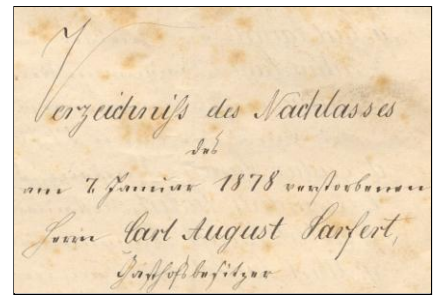 Verzeichniß des Nachlasses
des
am 7. Januar 1878 verstorbenen
Herrn Carl August Sarfert,
Gasthofsbesitzer